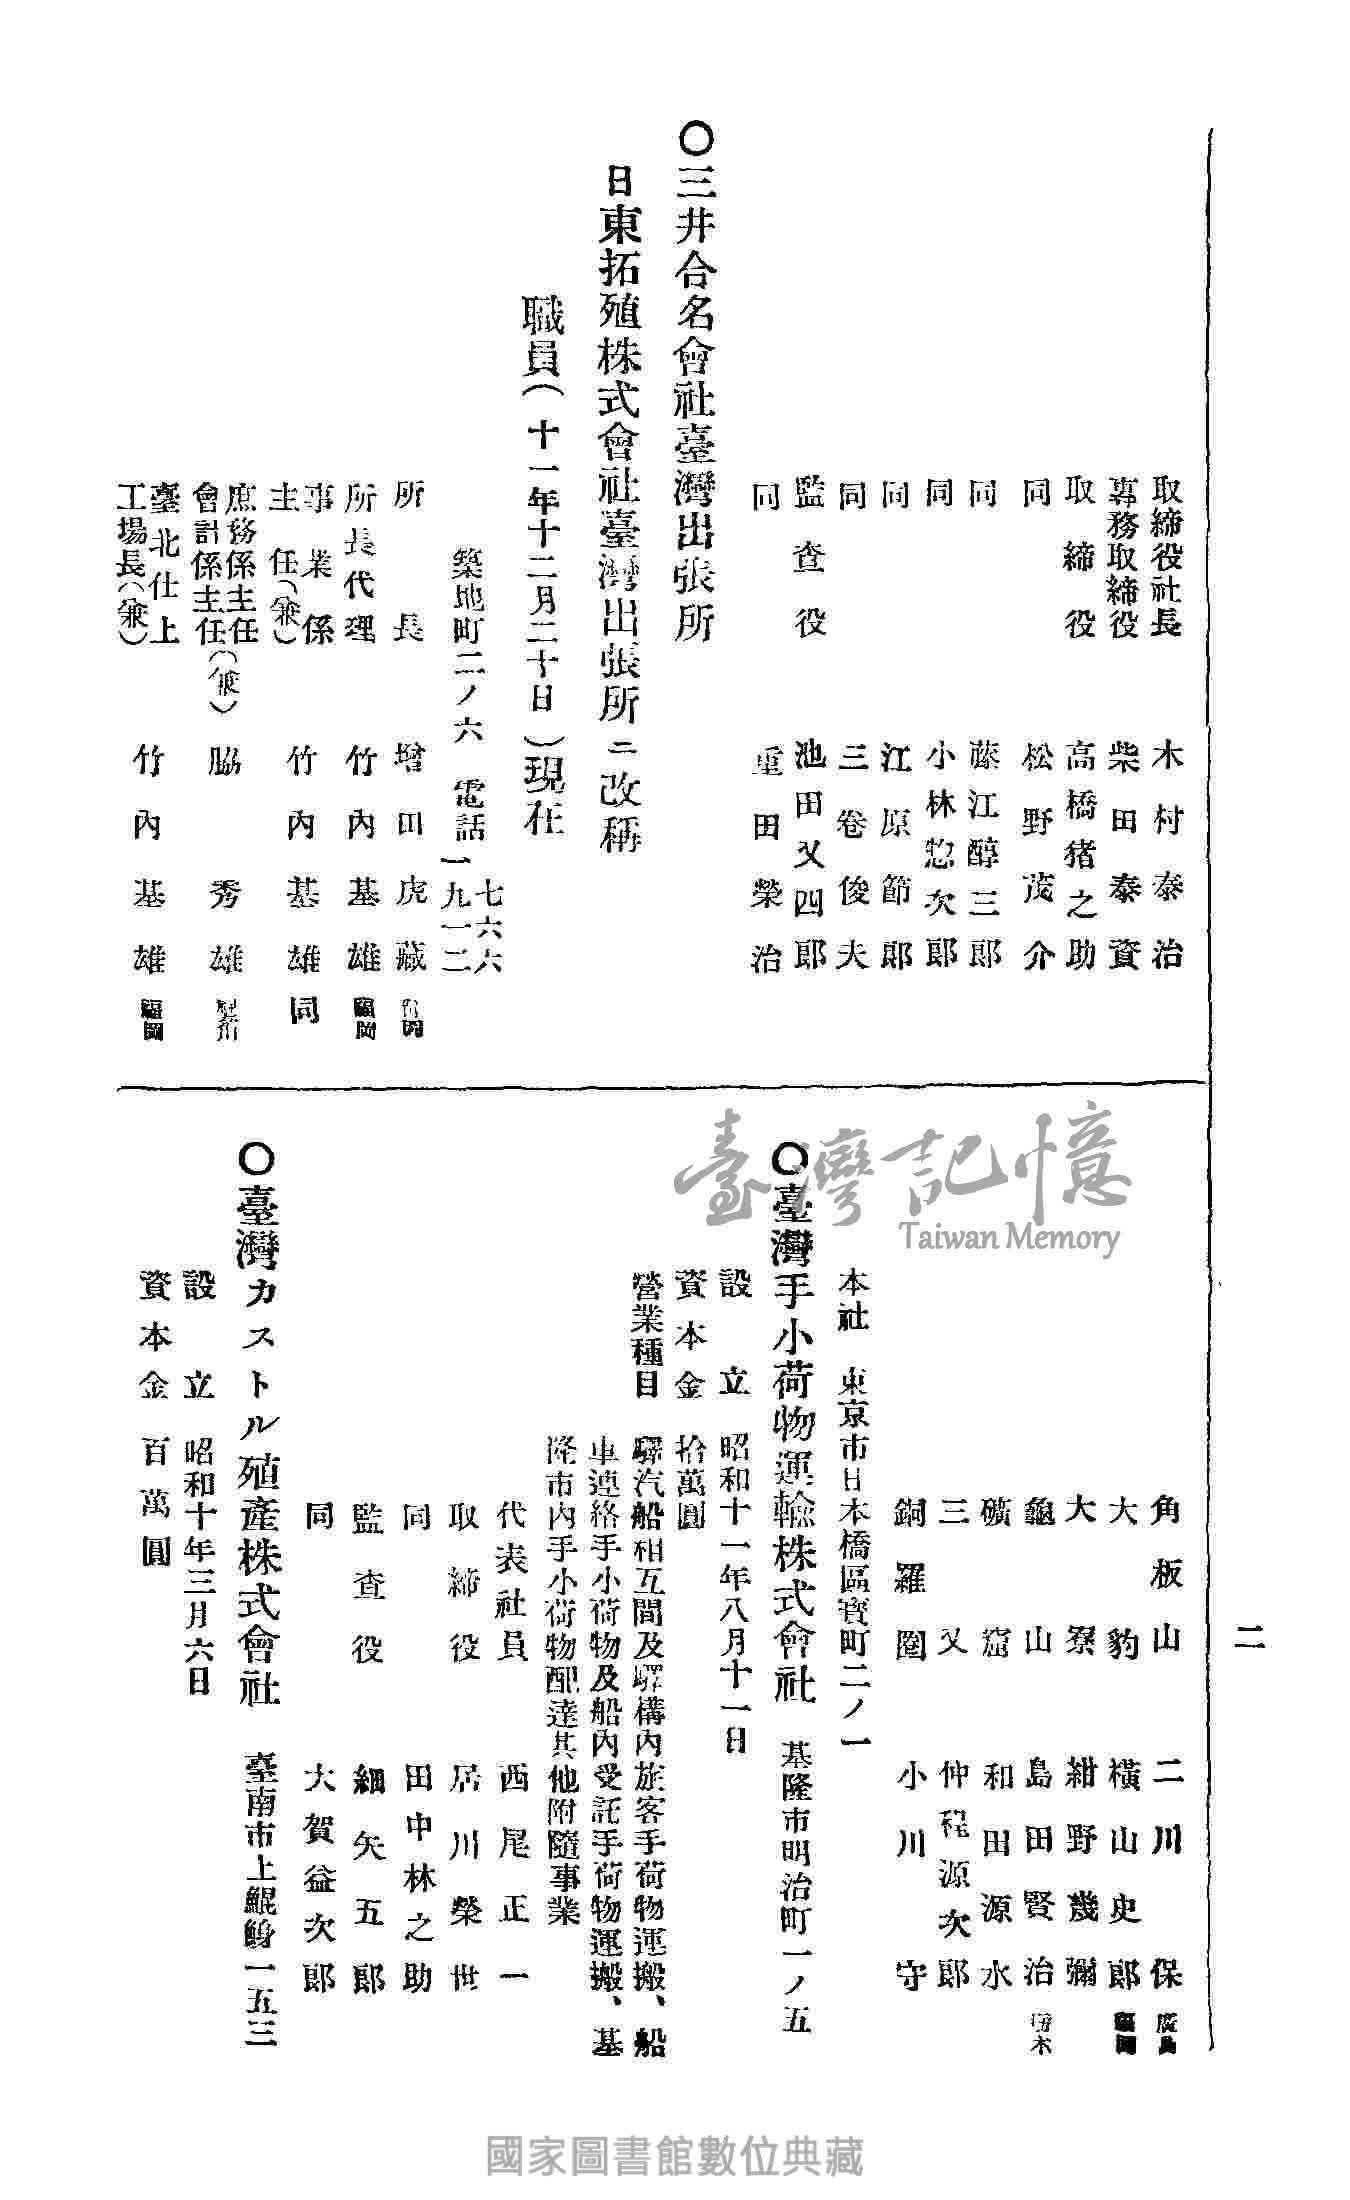 取締役社長 木村泰治
專務取締役 柴田泰資
取締役 高橋猪之助
同 松野茂介
同 藤江醇三郎
同 小林惣次郎
同 江原節郎
同 三卷俊夫
監査役 池田又四郎
同 重田榮治
〇三井合名會社臺灣出張所
日東拓殖株式會社臺灣出張所ニ改稱
職員(十一年十二月二十日)現在
築地町二ノ六 電話 七六六 一九一二
所長 增田虎藏
所長代理 竹內基雄 福岡
事業係主任(兼) 竹內基雄 同
庶務係主任
會計係主任(兼) 脇秀雄
臺北仕上工場長(兼) 竹內基雄 福岡
角板山 二川保 廣島
大豹 橫山史郎 福岡
大寮 紺野幾彌
龜山 島田賢治 栃木
礦窟 和田源水
三叉 仲程源次郎
銅羅圈 小川守
本社 東京市日本橋區寶町二ノ一
〇臺灣手小荷物運輸株式會社 基隆市明治町一ノ五
設立 昭和十一年八月十一日
資本金 拾萬圓
營業種目 驛汽船相互間及驛構內旅客手荷物運搬、船
車連絡手小荷物及船內受託手荷物運搬、基
隆市內手小荷物配達其他附隨事業
代表社員 西尾正一
取締役 居川榮世
同 田中林之助
監査役 細矢五郎
同 大賀益次郎
〇臺灣カストル殖產株式會社 臺南市上鯤鯓一五三
設立 昭和十年三月六日
資本金 百萬圓
二
臺灣記憶
Taiwan Memory
國家圖書館數位典藏